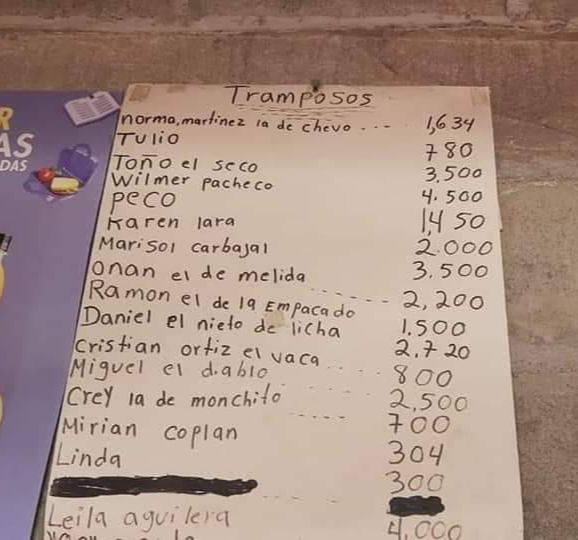 R
AS
DAS
Tramposos
norma, martinez la de chevo . - - 1,634
Tulio 780
Toño el seco 3,500
Wilmer pacheco 4.500
peco 1,450
Karen lara 2.000
Marisol carbajal 3.500
onan el de melida - - - - - 2,200
Ramon el de la Empacado 1.500
Daniel el nieto de licha 2,720
cristian ortiz el vaca - - - - 800
Miguel el diablo - - - - 2,500
Crey la de monchito - - - - 700
Mirian coplan 304
Linda 300
Leila aguilera 4,000